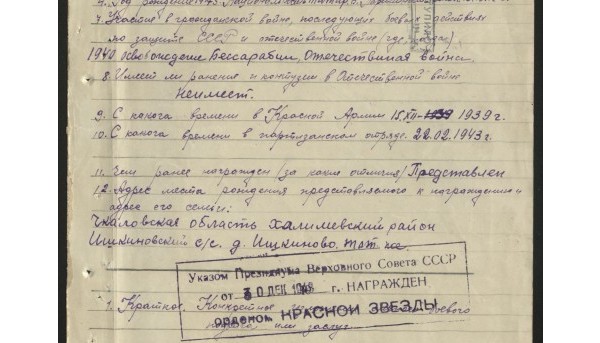 4. Год рождения
7. Участие в гражданской войне, последующих боевых действиях
по защите СССР и отечественной войне (где, когда)
1940 освобождение Бессарабии, Отечественная война
8. Имеет ли ранения и контузии в Отечественной войне
Неимеет.
9. С какога времени в Красной Армии 15.XII- 1939 г.
10. С какога времени в партизанском отряде. 22.02.1943 г.
11. Чем ранее награжден /за какие отличия/ Представлен
12. Адрес места рождения представляемого к награждению и
адрес его семьи:
Чкаловская область Халиловский район
Ишкиновский с/с. д. Ишкиново, тот же.
Указом Президиума Верховного Совета СССР
от 30 ДЕК 1948 г. НАГРАЖДЕН
орденом КРАСНОЙ ЗВЕЗДЫ
1. Краткое, Конкретное боевого
или